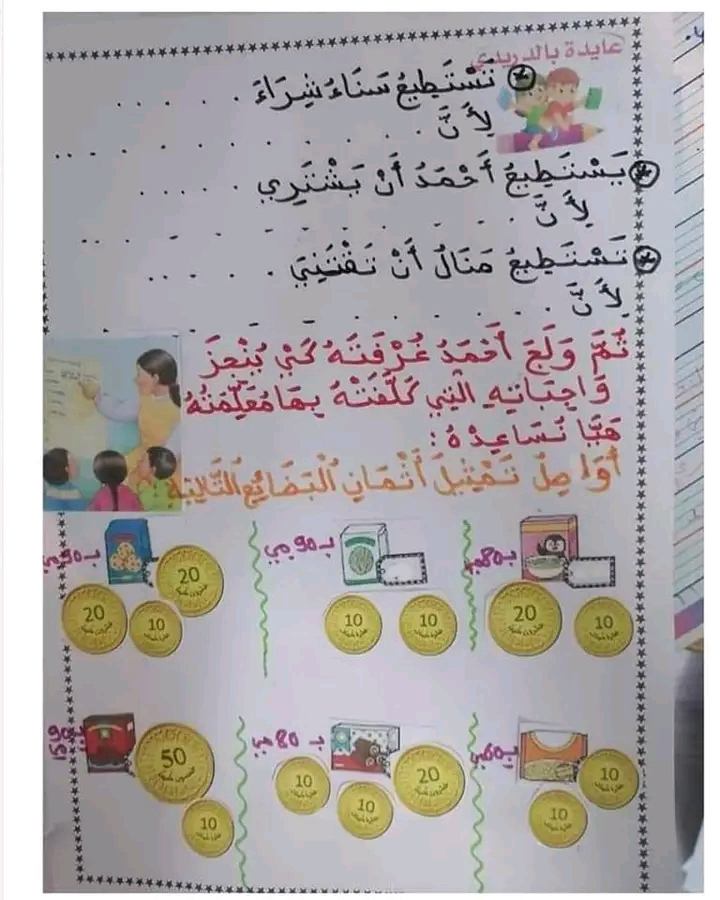 عايدة بالدريدي
* تَسْتَطِيعُ سَنَاءُ شِرَاءَ . . . . . .
لِأَنَّ . . . . . . . . . . . .
* يَسْتَطِيعُ أَحْمَدُ أَنْ يَشْتَرِي . . . . .
لِأَنَّ . . . . . . . . . . . .
* تَسْتَطِيعُ مَنَالُ أَنْ تَقْتَنِيَ . . . . . .
لِأَنَّ . . . . . . . . . . . .
ثُمَّ وَلَجَ أَحْمَدُ غُرْفَتَهُ كَيْ يُنْجِزَ
وَاجِبَاتِهِ الَّتِي كَلَّفَتْهُ بِهَا مُعَلِّمَتُهُ
هَيَّا نُسَاعِدْهُ:
أُوَاصِلُ تَمْثِيلَ أَثْمَانِ الْبَضَائِعِ التَّالِيَةِ:
بـ 80 مي
بـ 90 مي
بـ 90 مي
20
10
10
10
20
20
10
بـ 60 مي
بـ 80 مي
10
10
10
10
20
50
10